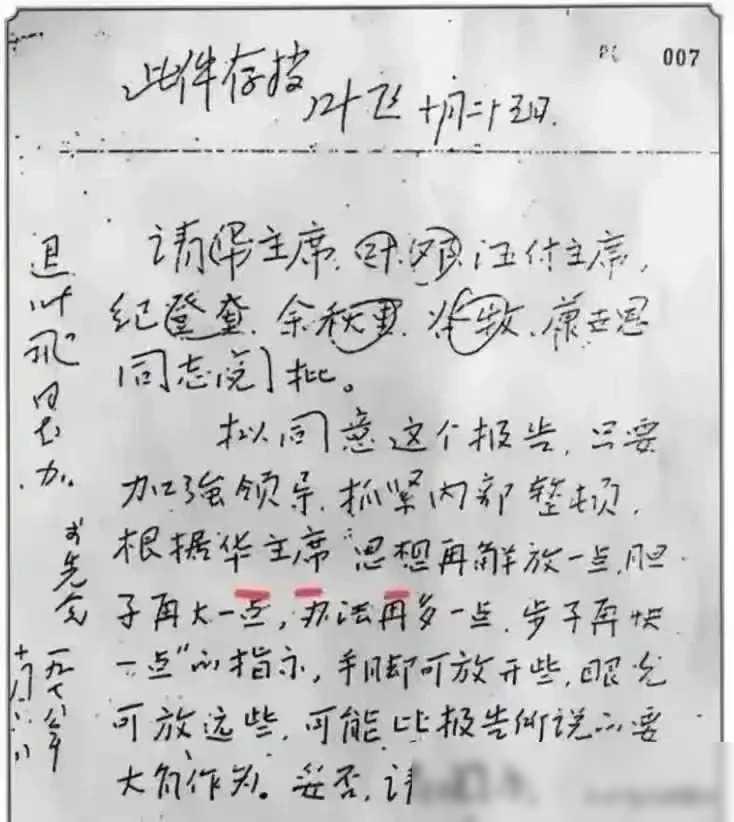 007
此件存档 叶飞 十月二十五日.
请华主席、叶、邓、汪付主席,
纪登奎、余秋里、谷牧、康世恩
同志阅批。
拟同意这个报告,只要
加強领导,抓紧内部整顿,
根据华主席“思想再解放一点,胆
子再大一点,办法再多一点,步子再快
一点”的指示,手脚可放开些,眼光
可放远些,可能比报告所说的要
大有作为。妥否,请
退叶飞同志办。
李先念
一九七八年